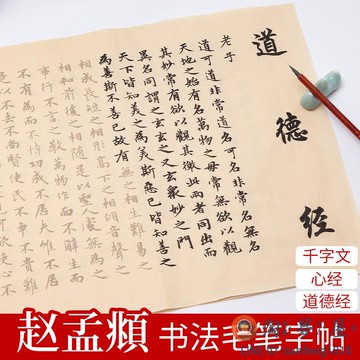 道德经
老子
道可道非常道名可名非常名無名
天地之始有名萬物之母常無欲以觀
其妙常有欲以觀其徼此兩者同出而
異名同謂之玄玄之又玄衆妙之門
天下皆知美之為美斯惡已皆知善之
為善斯不善已故有無之相生難易之
相成長短之相形高下之相傾音聲之
相和前後之相隨是以聖人處無為之
事行不言之教萬物作而不辭生而
不有為而不恃功成不居夫惟不居
是以不去不尚賢使民不爭不貴難
千字文
心经
道德经
赵孟頫 书法毛笔字帖